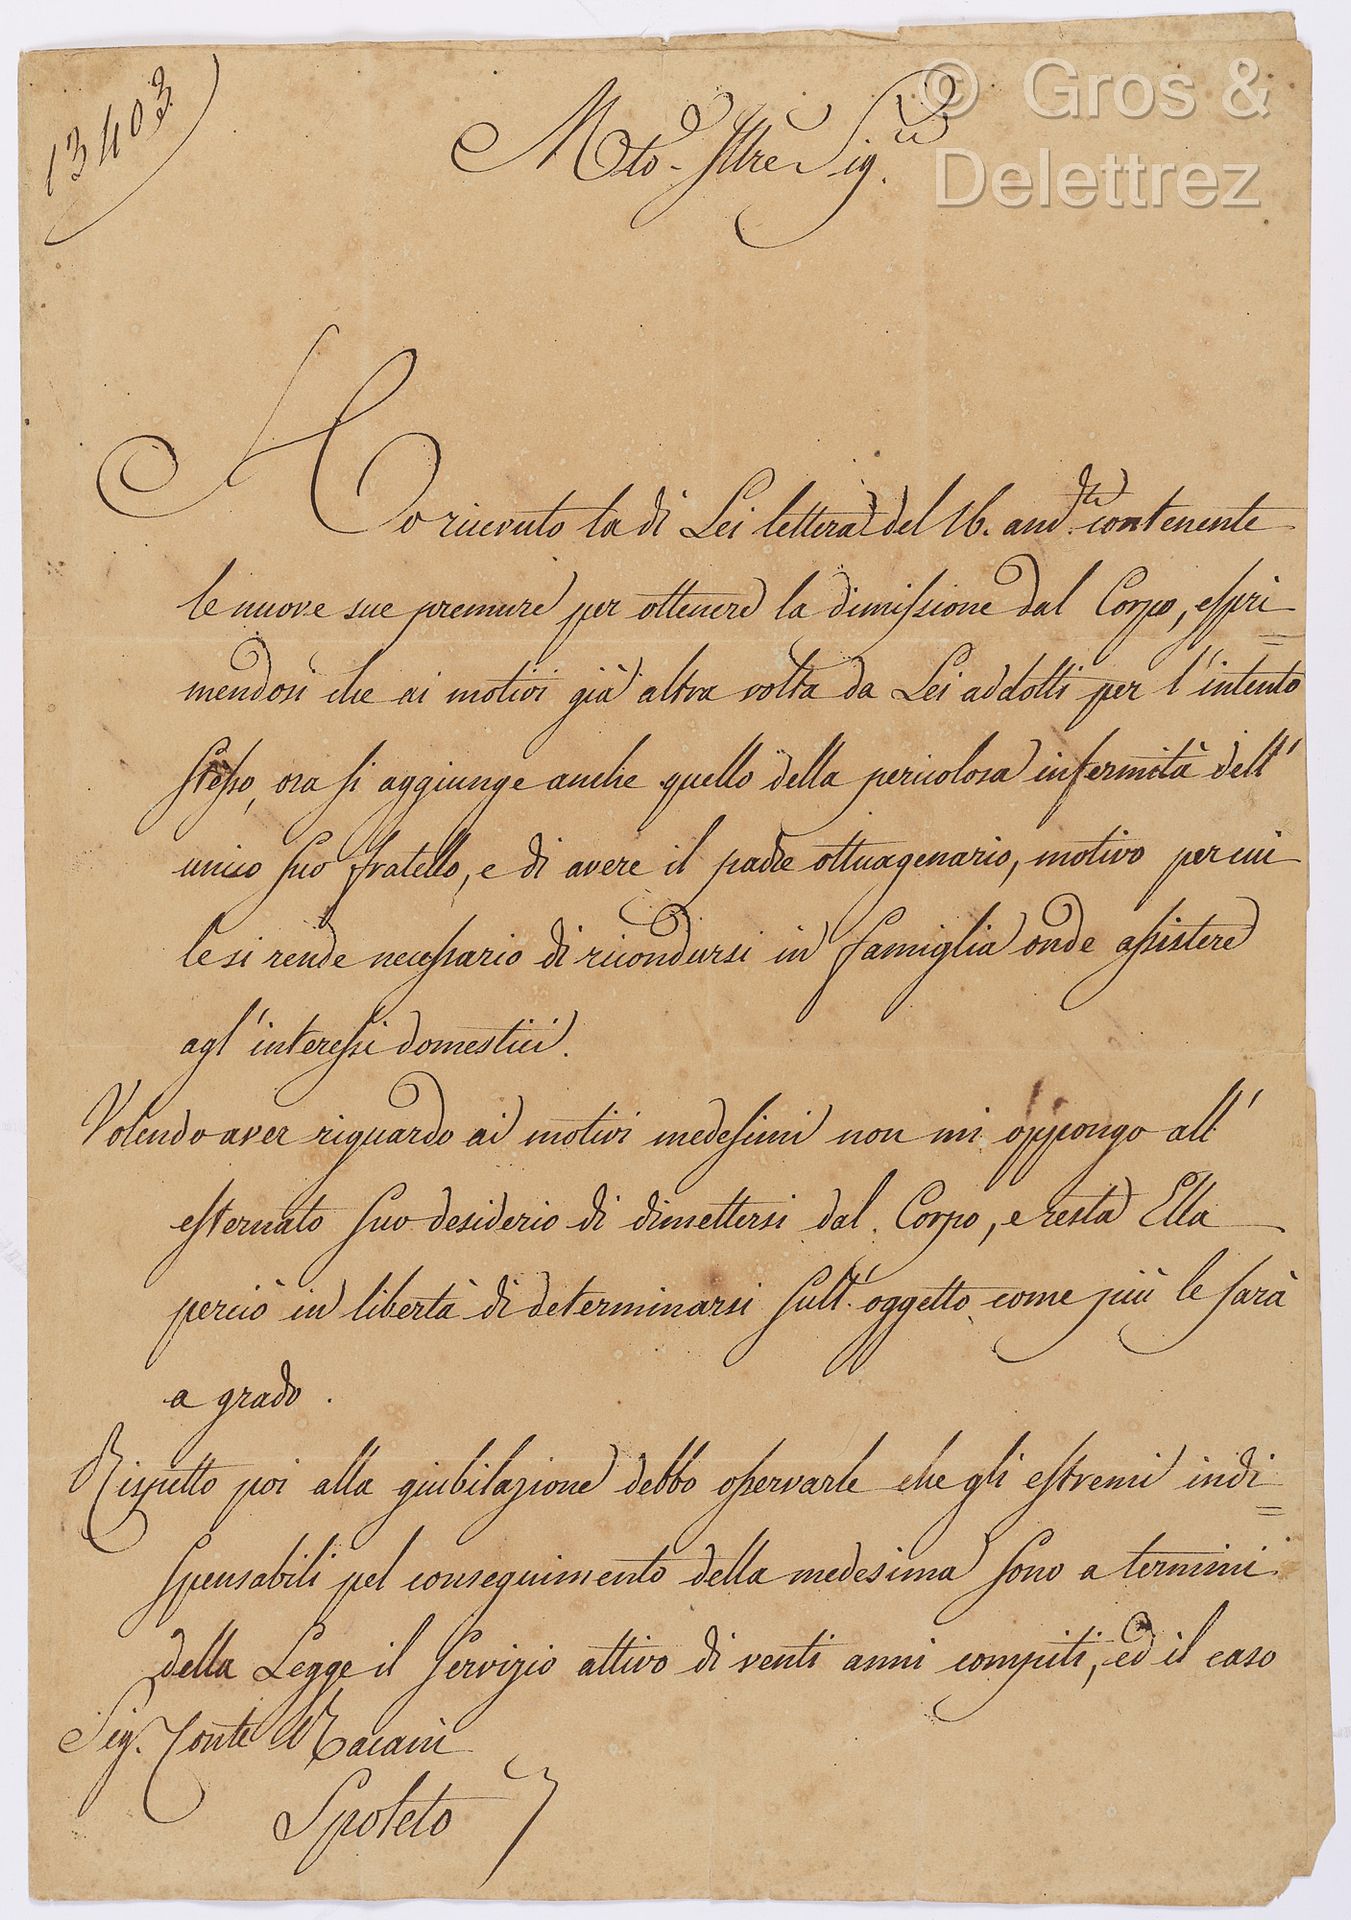 13403
© Gros &
Delettrez
Mto. Illre Sig.re
Ho ricevuto la di Lei lettera del 16. and.te contenente
le nuove sue premure per ottenere la dimissione dal Corpo, espri=
mendosi che ai motivi già altra volta da Lei addotti per l'intento
stesso, ora si aggiunge anche quello della pericolosa infermità dell'
unico suo fratello, e di avere il padre ottuagenario, motivo per cui
le si rende necessario di ricondursi in famiglia onde assistere
agl'interessi domestici.
Volendo aver riguardo ai motivi medesimi non mi oppongo all'
esternato suo desiderio di dimettersi dal Corpo, e resta Ella
perciò in libertà di determinarsi sull'oggetto come più le sarà
a grado.
Rispetto poi alla giubilazione debbo osservarle che gli estremi indi=
spensabili pel conseguimento della medesima sono a termini
della Legge il servizio attivo di venti anni compiti, ed il caso
Sig. Conte
Spoleto